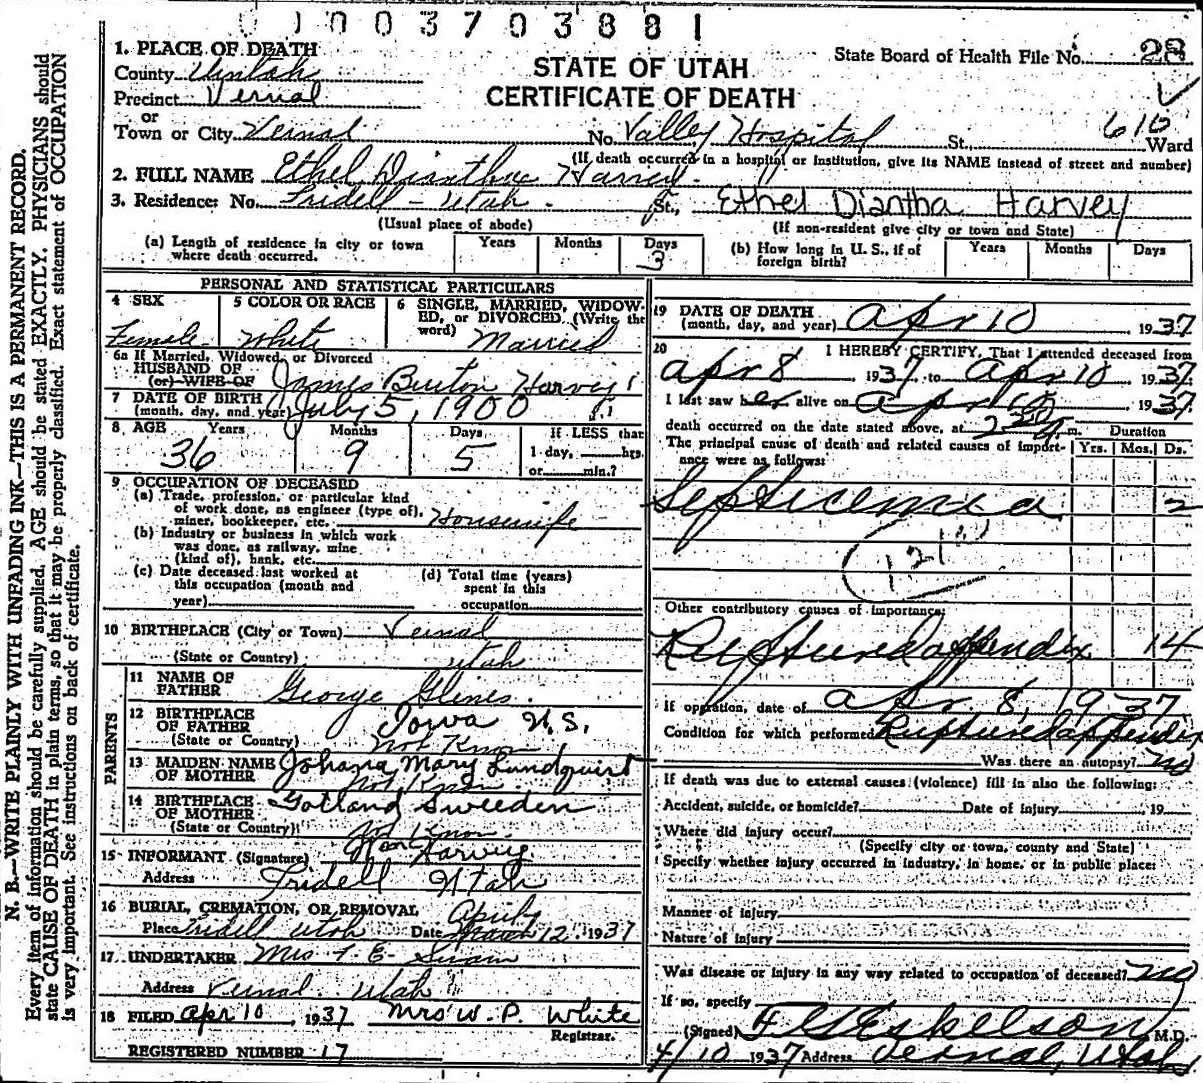 0 1 0 0 3 7 0 3 8 8 1
1. PLACE OF DEATH
County Uintah
Precinct Vernal
or
Town or City Vernal No. Valley Hospital St., 610 Ward
STATE OF UTAH
CERTIFICATE OF DEATH
State Board of Health File No. 28
(If death occurred in a hospital or institution, give its NAME instead of street and number)
2. FULL NAME Ethel Dianthe Harvey
3. Residence: No. Tridell - Utah. St., Ethel Diantha Harvey
(Usual place of abode) (If non-resident give city or town and State)
(a) Length of residence in city or town where death occurred. Years Months Days 3
(b) How long in U. S., if of foreign birth? Years Months Days
PERSONAL AND STATISTICAL PARTICULARS
4 SEX Female
5 COLOR OR RACE White
6 SINGLE, MARRIED, WIDOWED, or DIVORCED. (Write the word) Married
6a If Married, Widowed, or Divorced
HUSBAND OF
(or) WIFE OF James Burton Harvey
7 DATE OF BIRTH
(month, day, and year) July 5, 1900
8 AGE Years 36 Months 9 Days 5 If LESS than 1 day, hrs. or min.?
9 OCCUPATION OF DECEASED
(a) Trade, profession, or particular kind
of work done, as engineer (type of),
miner, bookkeeper, etc. Housewife
(b) Industry or business in which work
was done, as railway, mine
(kind of), bank, etc.
(c) Date deceased last worked at
this occupation (month and
year)
(d) Total time (years)
spent in this
occupation
10 BIRTHPLACE (City or Town) Vernal
(State or Country) Utah
PARENTS
11 NAME OF
FATHER George Glines.
12 BIRTHPLACE
OF FATHER Iowa U.S.
(State or Country) Not Know
13 MAIDEN NAME
OF MOTHER Johana Mary Lundquist
Not Know
14 BIRTHPLACE
OF MOTHER Gotland Sweeden
(State or Country) Not Know
15 INFORMANT (Signature) Harvey
Address Tridell Utah
16 BURIAL, CREMATION, OR REMOVAL
Place Tridell Utah Date April March 12 1937
17 UNDERTAKER Mrs F. E. Swain
Address Vernal Utah
18 FILED Apr 10, 1937 Mrs W. P. White
Registrar.
REGISTERED NUMBER 17
19 DATE OF DEATH
(month, day, and year) Apr 10 1937
20 I HEREBY CERTIFY, That I attended deceased from
Apr 8, 1937, to Apr 10, 1937.
I last saw her alive on Apr 10 1937
death occurred on the date stated above, at m. Duration
The principal cause of death and related causes of importance were as follows: Yrs. Mos. Ds.
Septicemia 2
121
Other contributory causes of importance:
Ruptured appendix 14
If operation, date of Apr 8, 1937
Condition for which performed Ruptured appendix
Was there an autopsy? No
If death was due to external causes (violence) fill in also the following:
Accident, suicide, or homicide? Date of injury, 19
Where did injury occur?
(Specify city or town, county and State)
Specify whether injury occurred in industry, in home, or in public place:
Manner of injury
Nature of injury
Was disease or injury in any way related to occupation of deceased? No
If so, specify
(Signed) Eskelson M.D.
4/10 1937 Address Vernal, Utah.
N. B.—WRITE PLAINLY WITH UNFADING INK—THIS IS A PERMANENT RECORD.
Every item of information should be carefully supplied. AGE should be stated EXACTLY. PHYSICIANS should
state CAUSE OF DEATH in plain terms, so that it may be properly classified. Exact statement of OCCUPATION
is very important. See instructions on back of certificate.